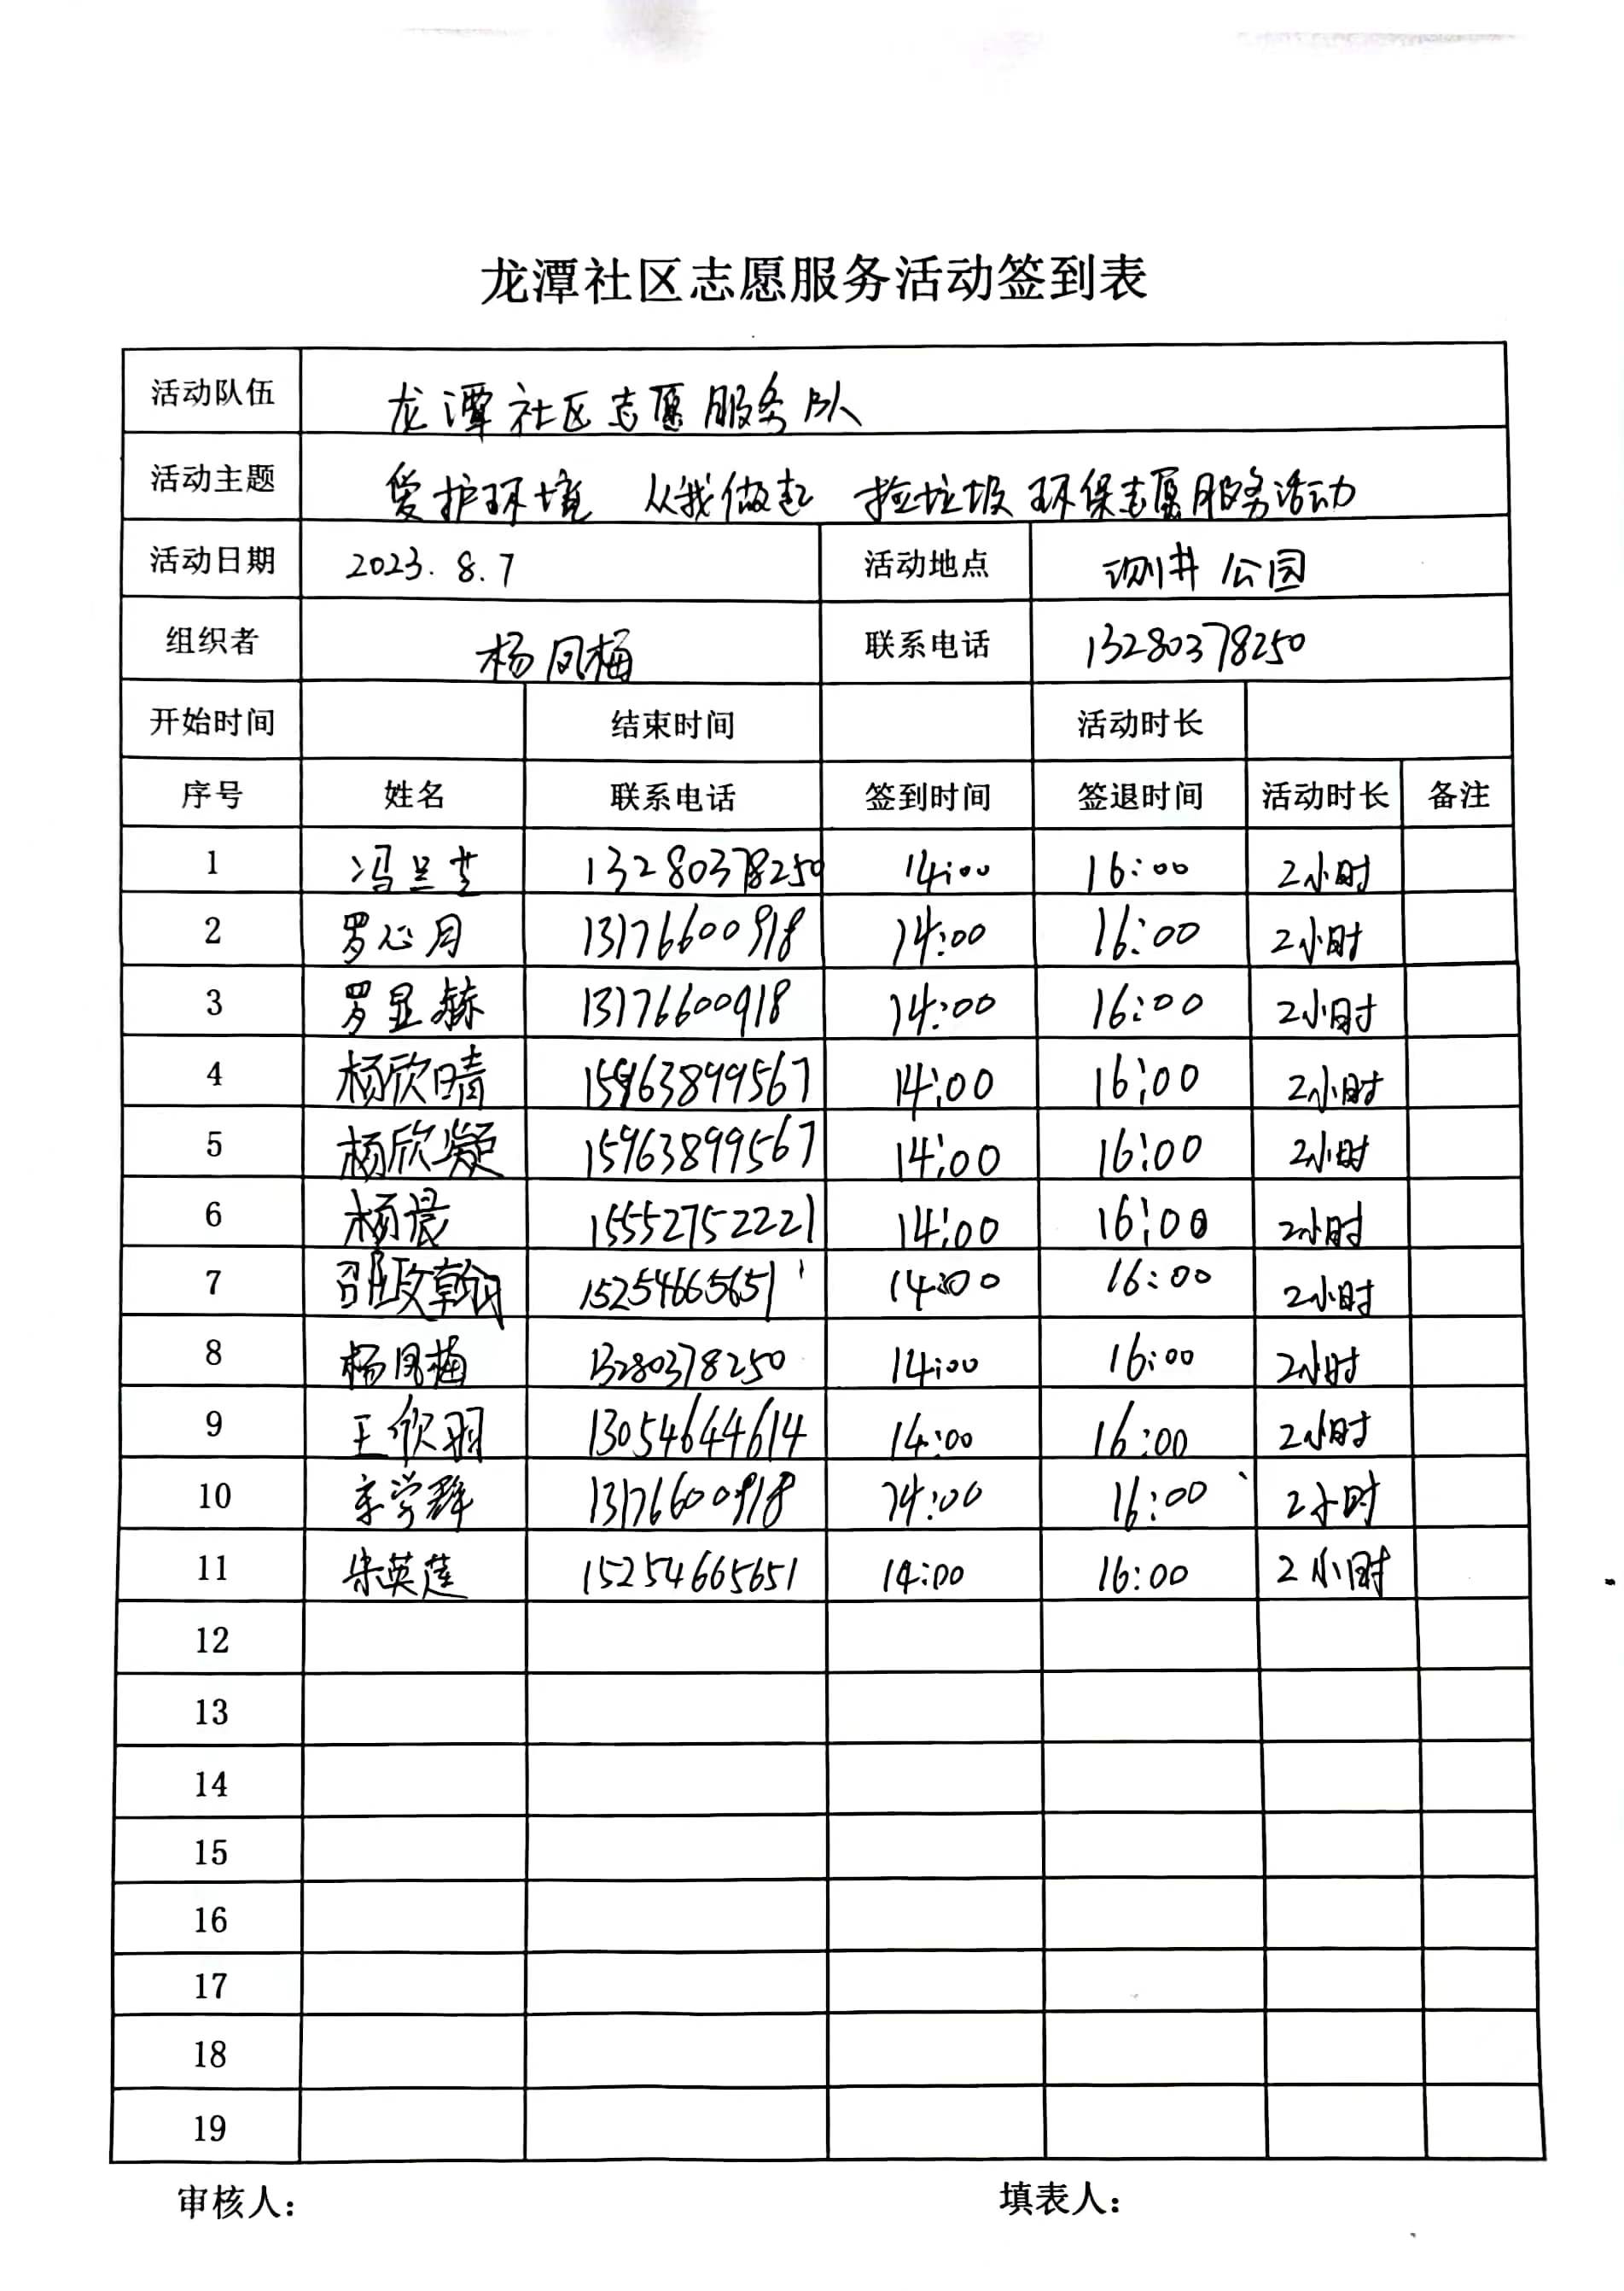 龙潭社区志愿服务活动签到表
活动队伍 龙潭社区志愿服务队
活动主题 爱护环境 从我做起 捡垃圾环保志愿服务活动
活动日期 2023.8.7 活动地点 公园
组织者 杨凤梅 联系电话 13280378250
开始时间 结束时间 活动时长
序号 姓名 联系电话 签到时间 签退时间 活动时长 备注
1 冯兰芝 13280378250 14:00 16:00 2小时
2 罗心月 13176600918 14:00 16:00 2小时
3 罗显赫 13176600918 14:00 16:00 2小时
4 杨欣晴 15963899567 14:00 16:00 2小时
5 杨欣凝 15963899567 14:00 16:00 2小时
6 杨晨 15552752221 14:00 16:00 2小时
7 邵政翰 15254665651 14:00 16:00 2小时
8 杨凤梅 13280378250 14:00 16:00 2小时
9 王欣羽 13054644614 14:00 16:00 2小时
10 宋学群 13176600918 14:00 16:00 2小时
11 宋英莲 15254665651 14:00 16:00 2小时
12
13
14
15
16
17
18
19
审核人： 填表人：